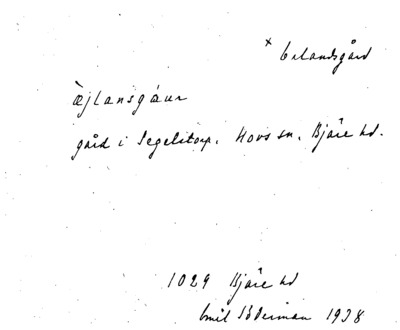 × Erlandsgård
æ̀jlansgáur
gård i Segelstorp. Hovs sn. Bjäre hd.
1029 Bjäre hd
Emil Söderman 1938